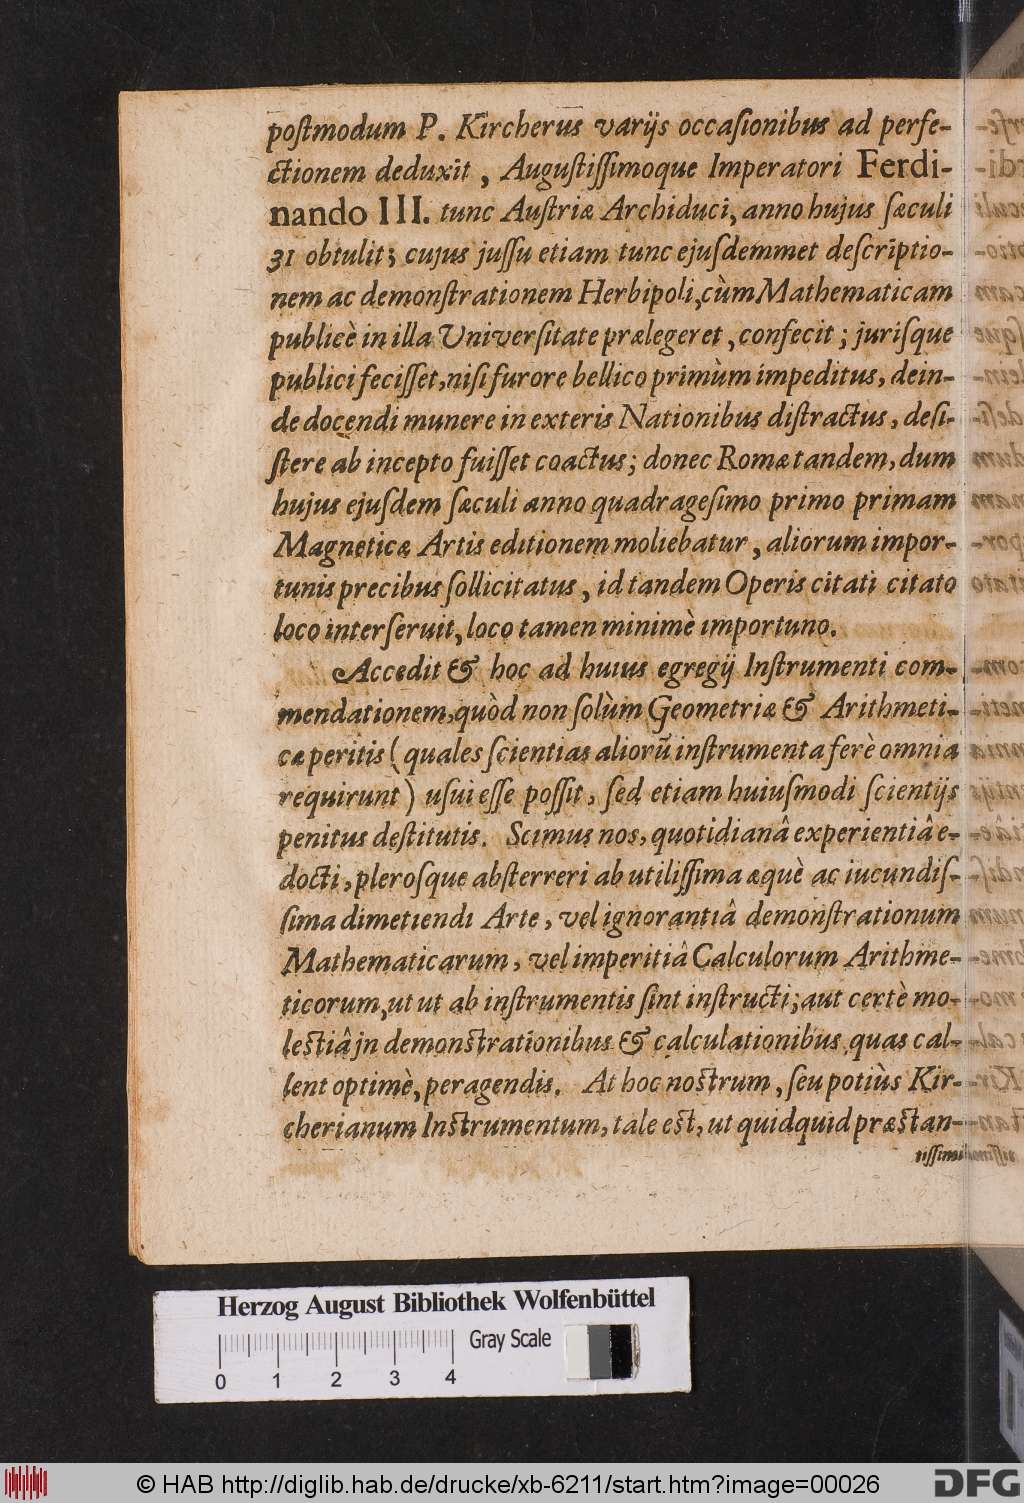 postmodum P. Kircherus varijs occasionibus ad perfe-
ctionem deduxit, Augustissimoque Imperatori Ferdi-
nando III. tunc Austriæ Archiduci, anno hujus sæculi
31 obtulit; cujus jussu etiam tunc ejusdemmet descriptio-
nem ac demonstrationem Herbipoli, cùm Mathematicam
publicè in illa Universitate prælegeret, confecit; jurisque
publici fecisset, nisi furore bellico primùm impeditus, dein-
de docendi munere in exteris Nationibus distractus, desi-
stere ab incepto fuisset coactus; donec Romæ tandem, dum
hujus ejusdem sæculi anno quadragesimo primo primam
Magneticæ Artis editionem moliebatur, aliorum impor-
tunis precibus sollicitatus, id tandem Operis citati citato
loco interseruit, loco tamen minimè importuno.
Accedit & hoc ad huius egregij Instrumenti com-
mendationem, quòd non solùm Geometriæ & Arithmeti-
cæ peritis (quales scientias aliorū instrumenta ferè omnia
requirunt) usui esse possit, sed etiam huiusmodi scientijs
penitus destitutis. Scimus nos, quotidianâ experientiâ e-
docti, plerosque absterreri ab utilissima æquè ac iucundis-
sima dimetiendi Arte, vel ignorantiâ demonstrationum
Mathematicarum, vel imperitiâ Calculorum Arithme-
ticorum, ut ut ab instrumentis sint instructi; aut certè mo-
lestiâ jn demonstrationibus & calculationibus quas cal-
lent optimè, peragendis. At hoc nostrum, seu potiùs Kir-
cherianum Instrumentum, tale est, ut quidquid præstan-
tissimi
Herzog August Bibliothek Wolfenbüttel
Gray Scale
0 1 2 3 4
© HAB http://diglib.hab.de/drucke/xb-6211/start.htm?image=00026
DFG